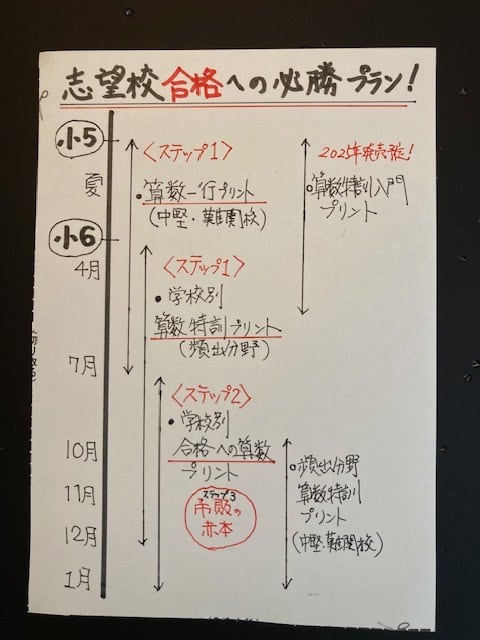 志望校合格への必勝プラン!
小5
夏
小6
4月
7月
10月
11月
12月
1月
〈ステップ1〉
・算数一行プリント
(中堅・難関校)
2025年発売予定!
・算数特訓入門
プリント
〈ステップ1〉
・学校別
算数特訓プリント
(頻出分野)
〈ステップ2〉
・学校別
合格への算数
プリント
ステップ3
赤本
・頻出分野
算数特訓
プリント
(中堅・難関校)